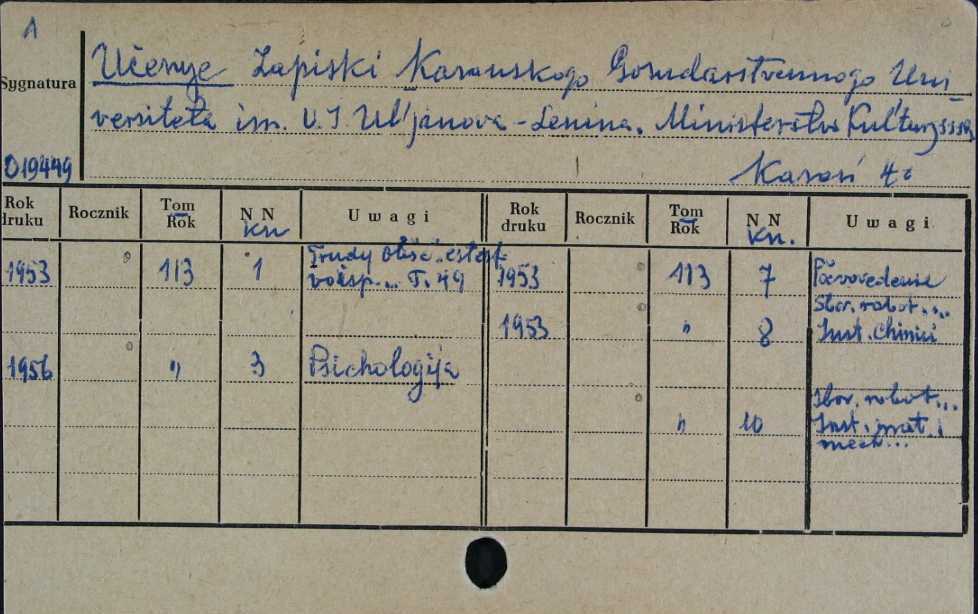 1
Učenye Zapiski Kazanskogo Gosudarstvennogo Uni-
versiteta im. V. I Ul'janova-Lenina. Ministerstvo Kul'tury SSSR
Sygnatura
019449
Kazań 4º
Rok druku Rocznik Tom Rok N N kn Uwagi Rok druku Rocznik Tom Rok N N kn. Uwagi
1953 113 1 Trudy obšč. estest.
voisp... T. 49
1953 113 7 Počvovedenie
1953 " 8 Sbor. robot...
Inst. Chimii
1956 " 3 Psichologija
" 10 Sbor. robot...
Inst. mat. i
mech...